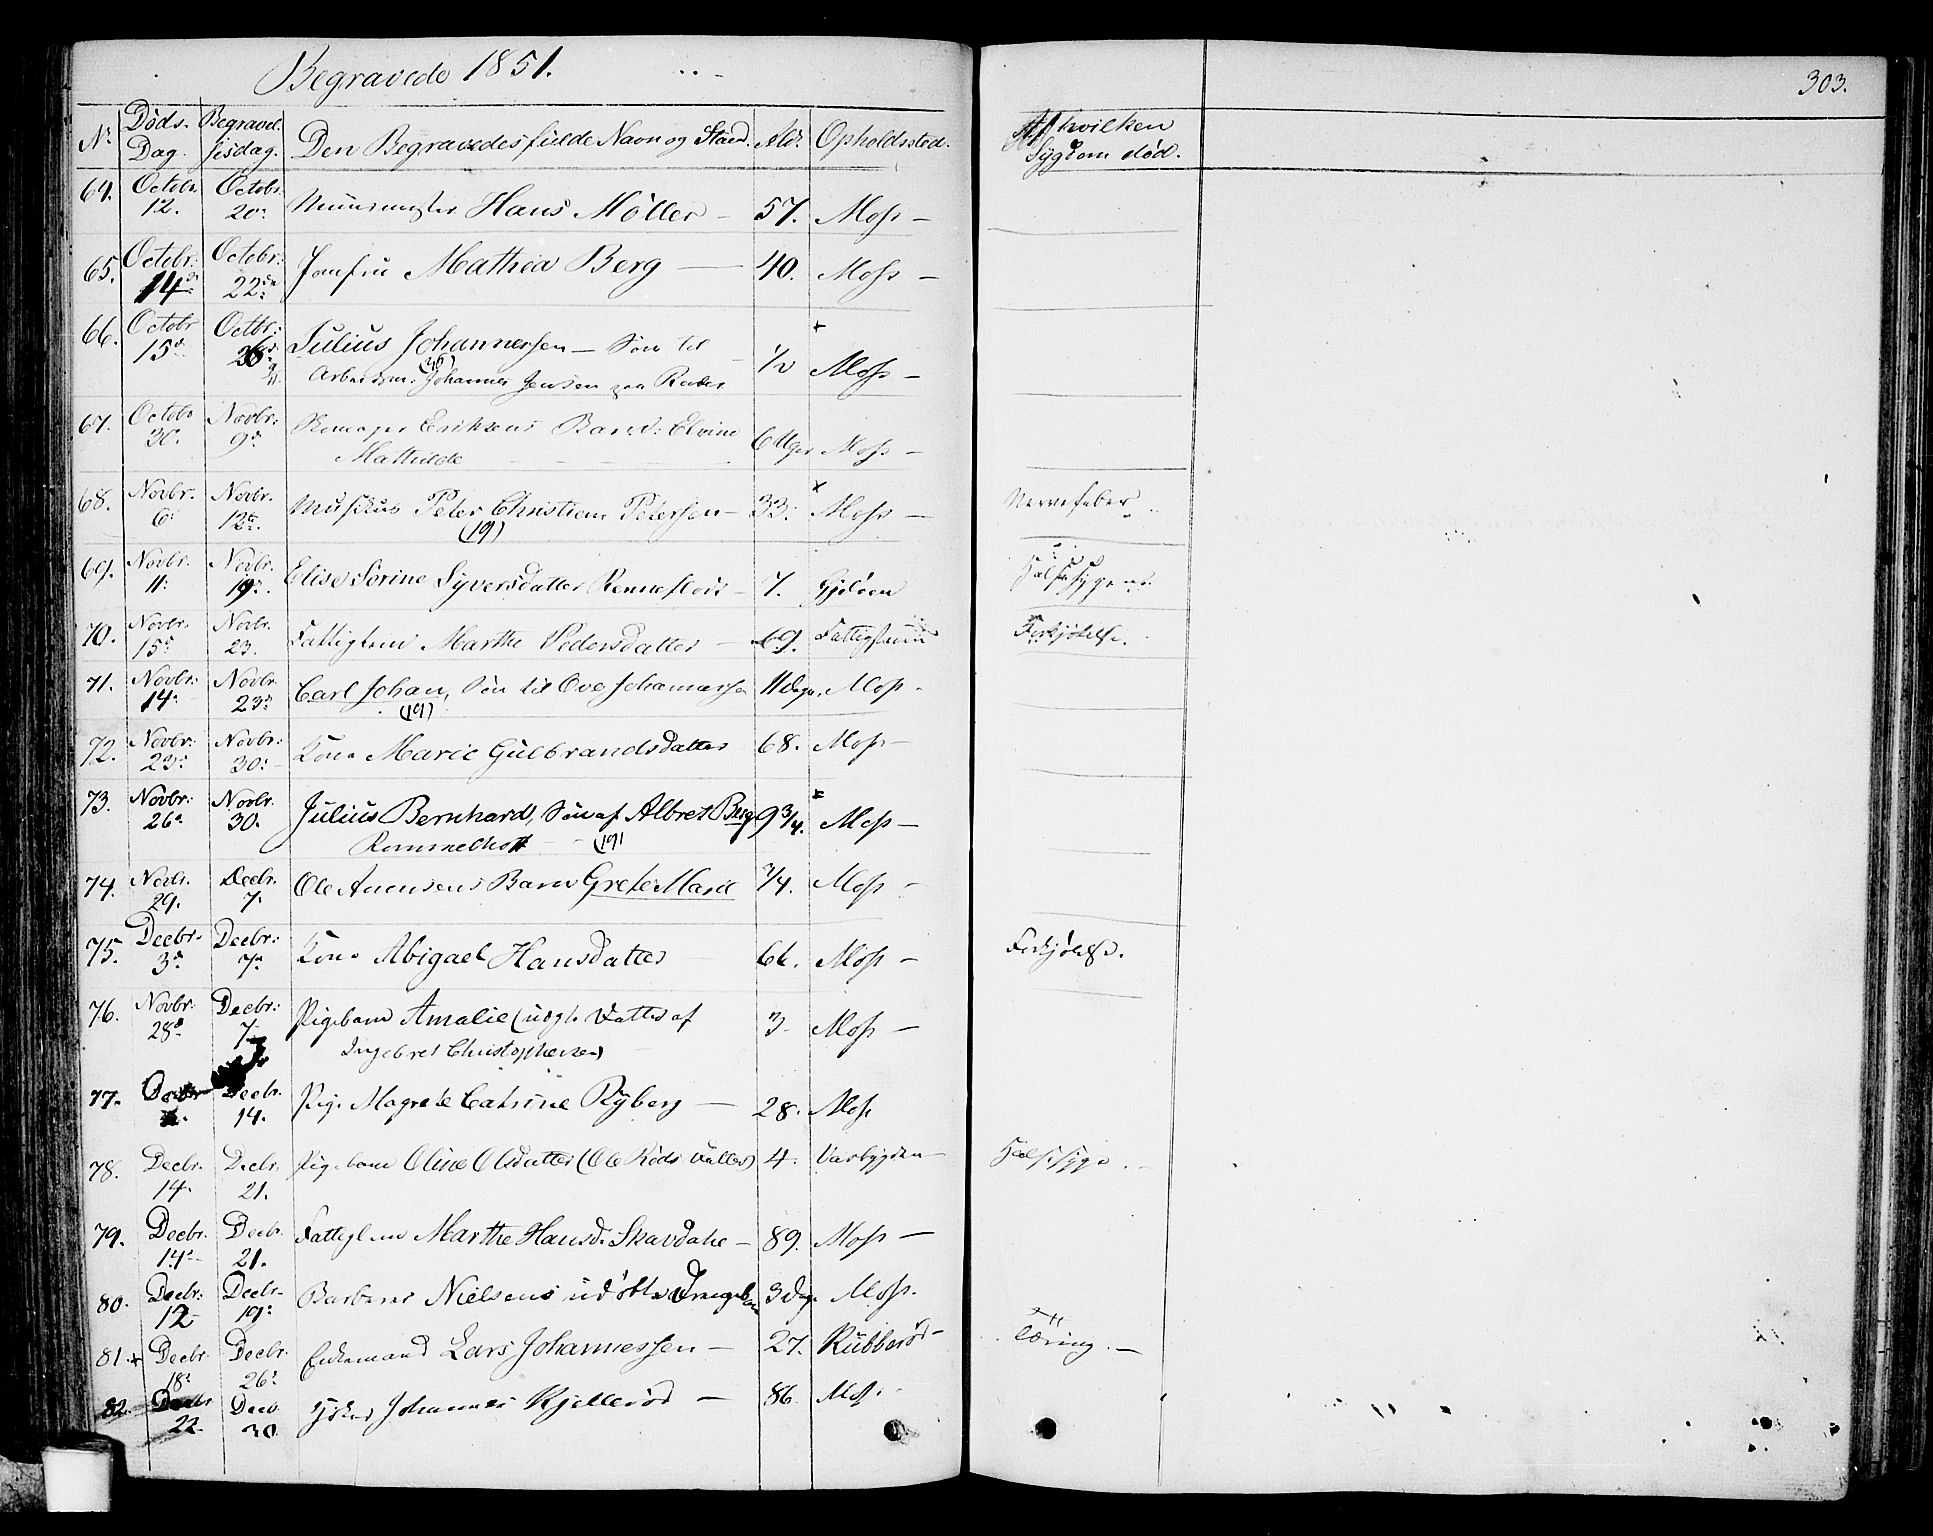 Begravede 1851.
303.
No. Døds-Dag. Begravelsesdag. Den Begravedes fulde Navn og Stand. Ald. Opholdssted. Af hvilken Sygdom død.
64. Octobr. 12. Octobr. 20. Hans Møller – 57. Moss –
65. Octobr. 14d Octobr. 22de Jomfru Mathea Berg – 40. Moss –
66. Octobr 15d Octbr: Julius Johannessen – Søn til
Arbeidsm. Johannes Jensen paa 1/2 Moss –
67. Octobr 30. Novbr: 9d Eriksens Barn: Elvine
Mathilde 6 Uger Moss –
68. Novbr. 6. Novbr. 12. Musikus Peter Christian Petersen – 33. Moss – Nervefeber
(19)
69. Novbr. 11. Novbr. 19. Elise Sørine Syversdatter Renneflodt – 7. Gjeløen Halssygen.
70. Novbr. 15d Novbr. 23. Fattiglem Marthe Pedersdatter – 69. Forkjølelse.
71. Novbr. 14. Novbr. 23d Carl Johan, Søn til Ove Johannessen 11 dage. Moss –
(19)
72. Novbr: 23d Novbr: 30. Kone Marie Gulbrandsdatter 68. Moss –
73. Novbr: 26. Novbr. 30. Julius Bernhard, Søn af Albret Berg 9 3/4. Moss –
Rommelhoff – (19)
74. Novbr. 29. Decbr. 7. Ole Amensens Barn Grete Marie 3/4. Moss –
75. Decbr. 3d Decbr: 7. Kone Abigael Hansdatter 66. Moss – Forkjølelse.
76. Novbr: 28d Decbr: 7. Pigebarn Amalie (uægte Datter af
Ingebret Christophersen) 3. Moss –
77. Decbr. 14. Pige Magrete Catrine Ryberg – 28. Moss
78. Decbr. 14. Decbr. 21. Pigebarn Oline Olsdatter (Ole Røds Datter) 4. Varbygden – Halssyge. –
79. Decbr. 14. Decbr. 21. Fattiglem Marthe Hansd. Skavdahe – 89. Moss –
80. Decbr: 12 Decbr. 19. Barberer Nielsens udøbte Drengebarn 3 Dage Moss.
81. + Decbr. 18. Decbr. 26. Enkemand Lars Johannessen – 27. Rubberød – Tæring. –
82. Decbr 22. Decbr 30 Johannes Kjellerød – 86. Moss.